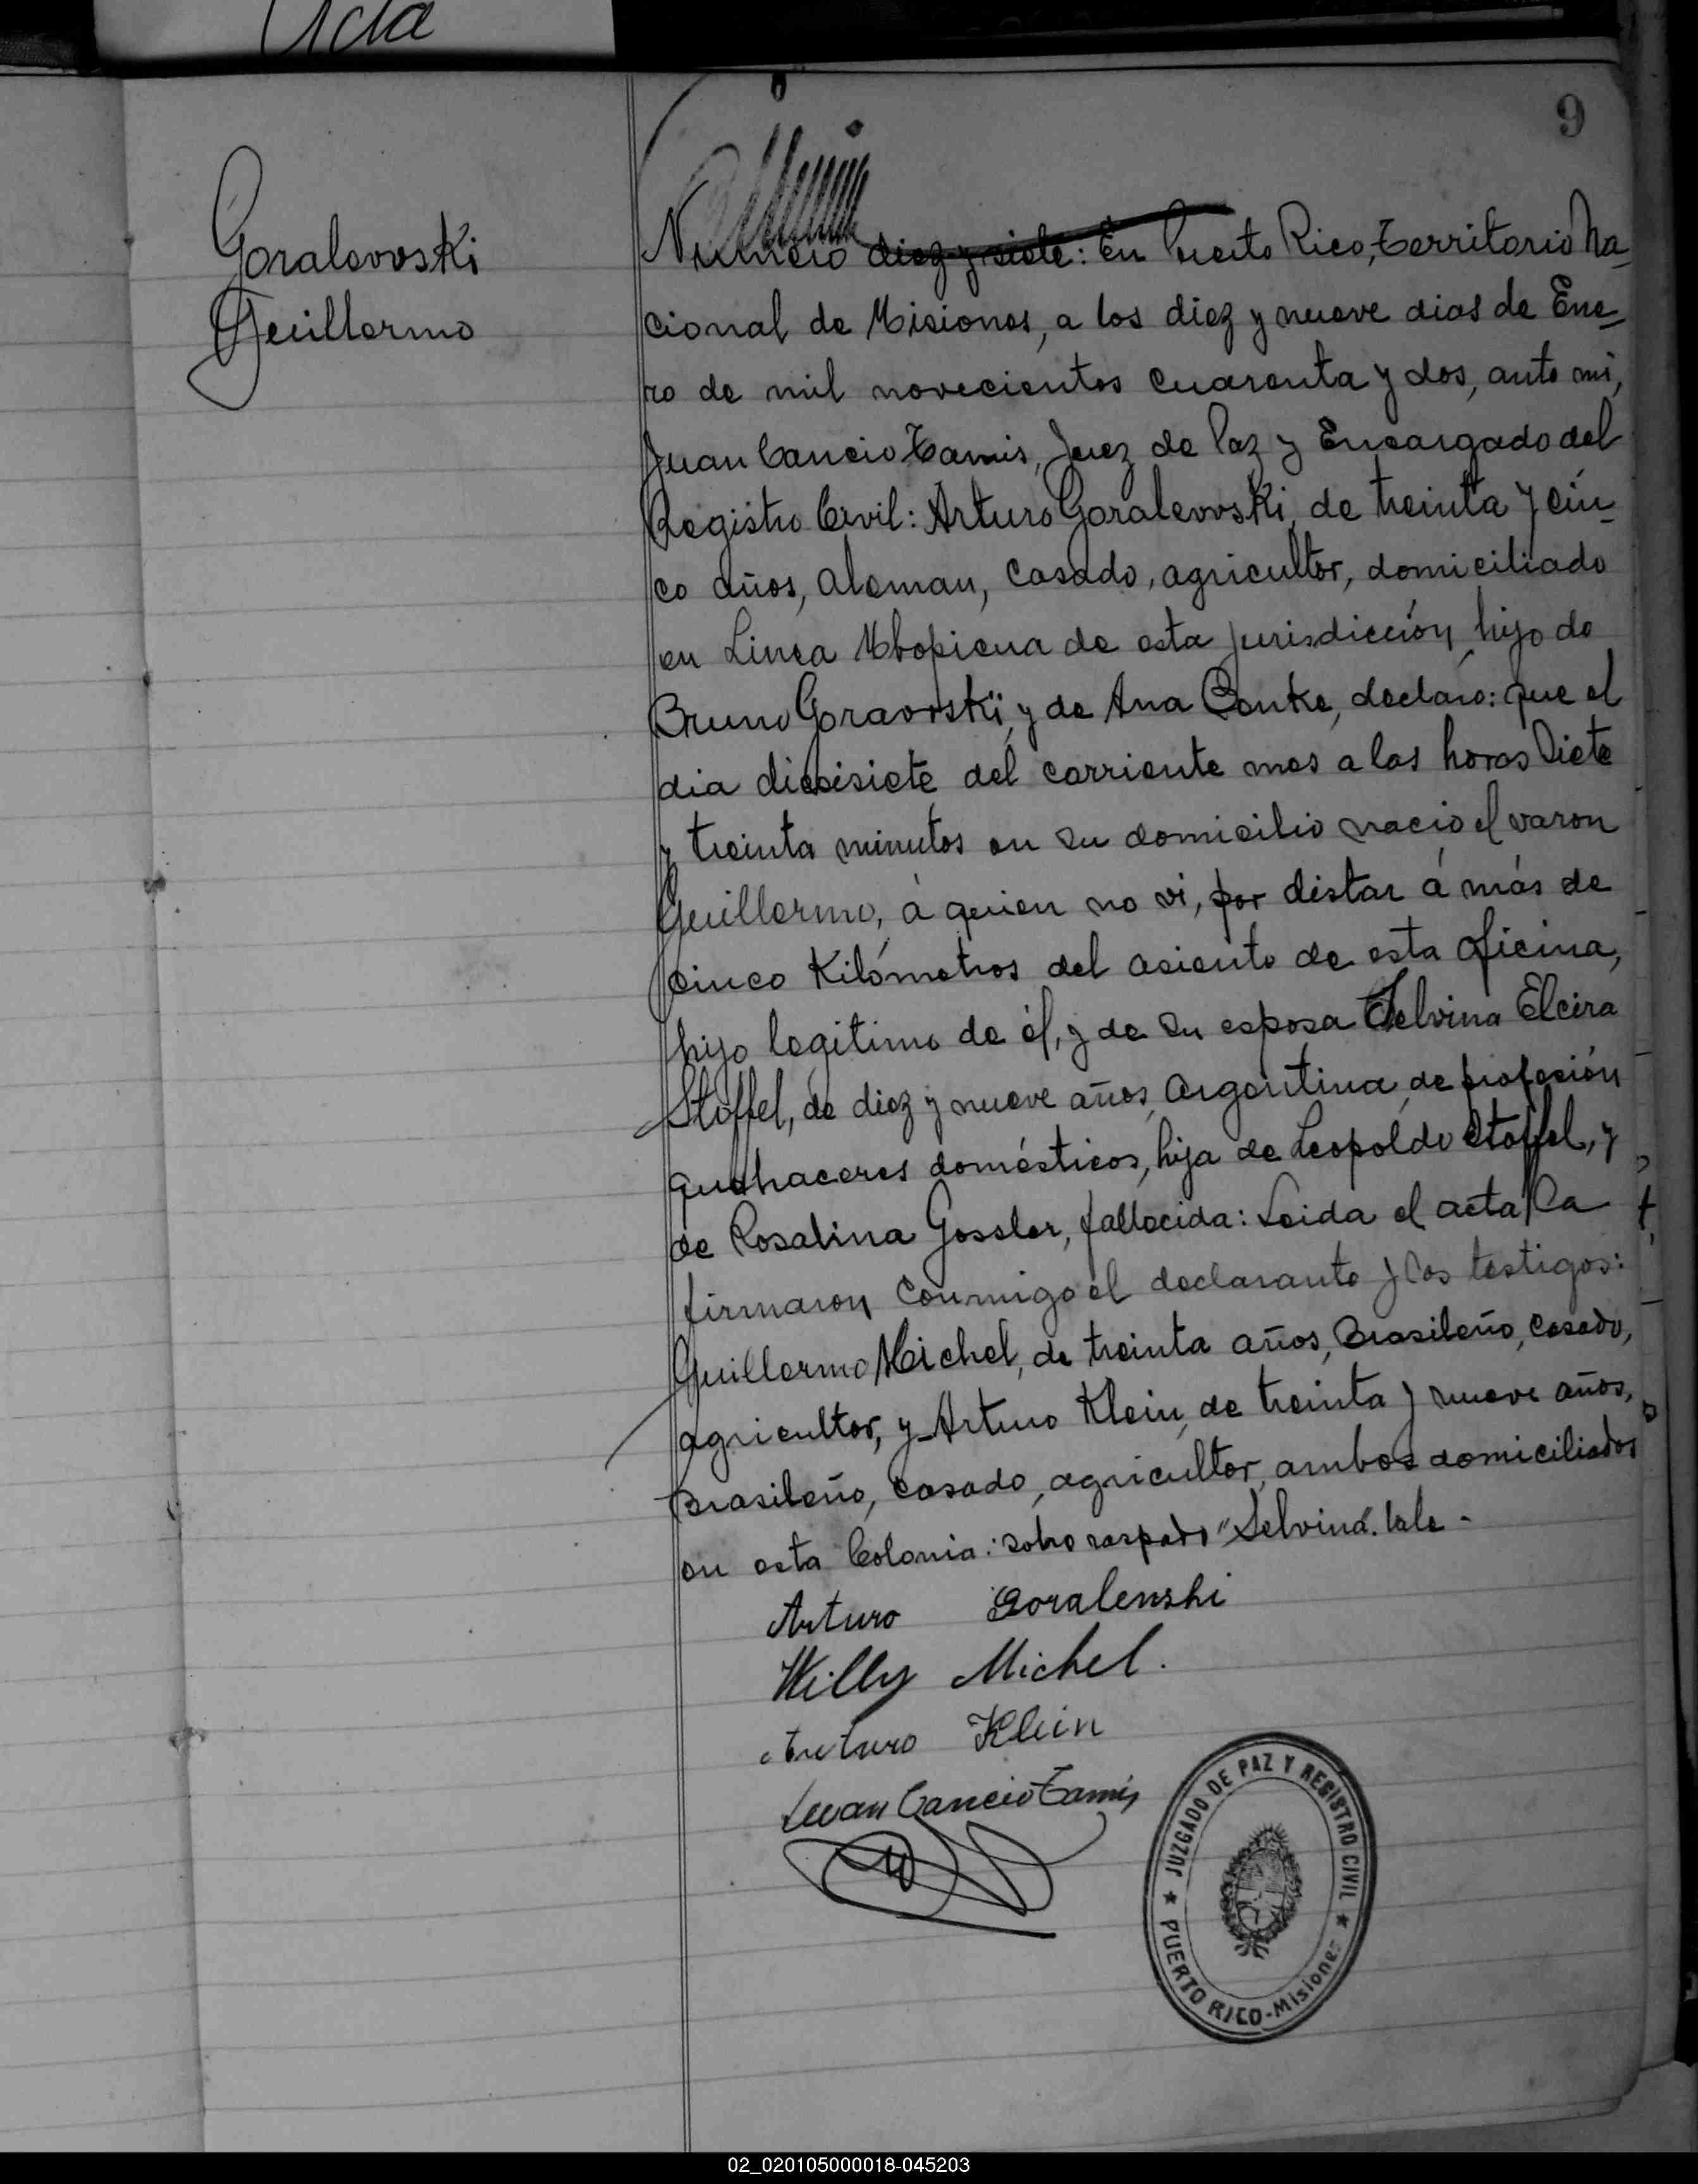 Acta
9
Goralewski
Guillermo
Numero diez y siete: En Puerto Rico, Territorio Na-
cional de Misiones, a los diez y nueve dias de Ene-
ro de mil novecientos cuarenta y dos, ante mi,
Juan Cancio Tamis, Juez de Paz y Encargado del
Registro Civil: Arturo Goralewski, de treinta y cin-
co años, aleman, casado, agricultor, domiciliado
en Linea Mbopicua de esta jurisdicción, hijo de
Bruno Gorawski, y de Ana Conke, declaró: que el
dia diesisiete del corriente mes a las horas siete
y treinta minutos en su domicilio nació el varon
Guillermo, á quien no vi, por distar á más de
cinco Kilómetros del asiento de esta oficina,
hijo legitimo de él, y de su esposa Selvina Elcira
Stoffel, de diez y nueve años, argentina, de profesión
quehaceres domésticos, hija de Leopoldo Stoffel, y
de Rosalina Gossler, fallecida: Leida el acta la
firmaron conmigo el declarante y los testigos:
Guillermo Michel, de treinta años, Brasileño, casado,
agricultor, y Arturo Klein, de treinta y nueve años,
Brasileño, casado, agricultor, ambos domiciliados
en esta Colonia: sobre raspado "Selvina". Vale -
Arturo Goralenski
Willy Michel.
Arturo Klein
Juan Cancio Tamis
JUZGADO DE PAZ Y REGISTRO CIVIL
PUERTO RICO - Misiones
02_020105000018-045203